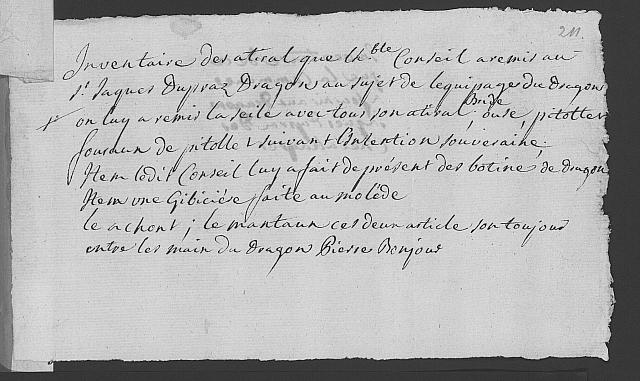 211.
Inventaire des atiral que lh.ble Conseil a remis au
Sr Jaques Dupraz Dragons au sujet de lequipage du Dragons
on luy a remis la selle avec tous son atiral, Bride, pitollet
fouraux de pitollet suivant lintention souveraine;
Item lodit Conseil luy a fait de present des botine de dragon
Item une Gibiciére faite au molède
le achont; le mantaun ces deux article son toujour
entre les main du Dragon Pierre Bonjour